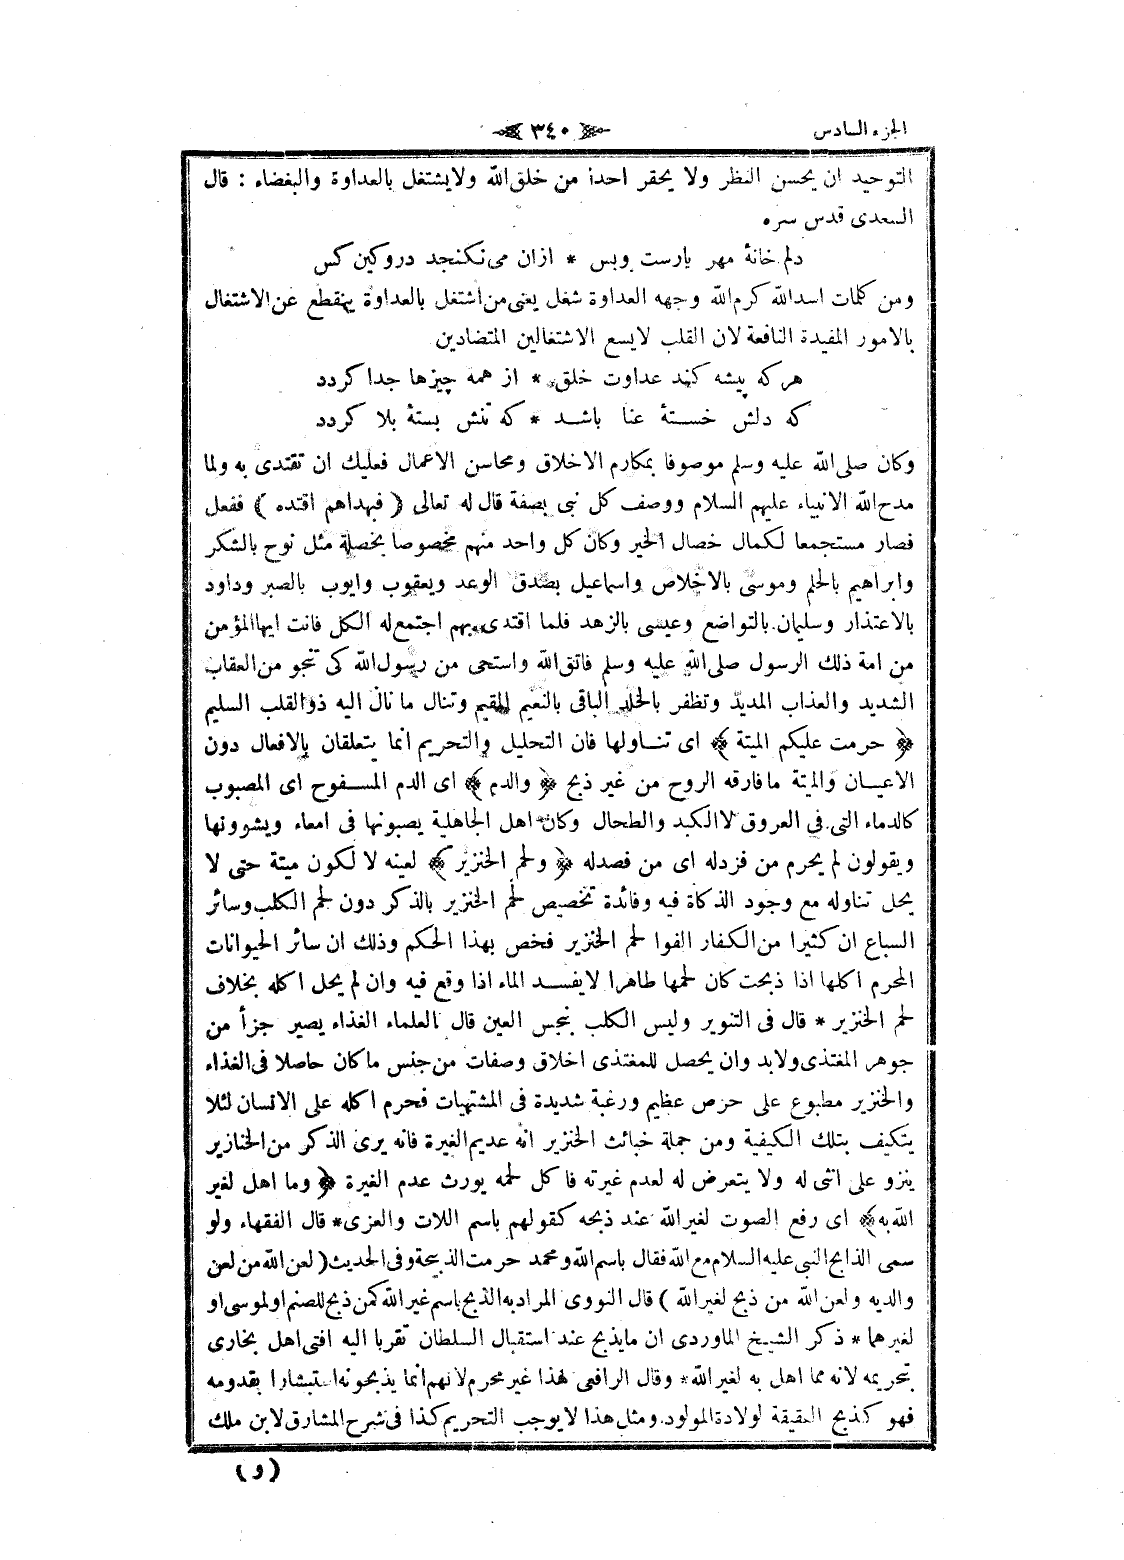 الجزء السادس
﴿ ٣٤٠ ﴾
التوحيد ان يحسن النظر ولا يحقر احدا من خلق الله ولا يشتغل بالعداوة والبغضاء : قال
السعدى قدس سره
دلم خانهٔ مهر يارست وبس * ازان مى نكنجد دروكين كس
ومن كلمات اسدالله كرم الله وجهه العداوة شغل يعنى من اشتغل بالعداوة ينقطع عن الاشتغال
بالامور المفيدة النافعة لان القلب لايسع الاشتغالين المتضادين
هركه پيشه كند عداوت خلق * از همه چيزها جدا كردد
كه دلش خستهٔ عنا باشد * كه تنش بستهٔ بلا كردد
وكان صلى الله عليه وسلم موصوفا بمكارم الاخلاق ومحاسن الاعمال فعليك ان تقتدى به ولما
مدح الله الانبياء عليهم السلام ووصف كل نبى بصفة قال له تعالى ( فبهداهم اقتده ) ففعل
فصار مستجمعا لكمال خصال الخير وكان كل واحد منهم مخصوصا بخصلة مثل نوح بالشكر
وابراهيم بالحلم وموسى بالاخلاص واسماعيل بصدق الوعد ويعقوب وايوب بالصبر وداود
بالاعتذار وسليمان بالتواضع وعيسى بالزهد فلما اقتدى بهم اجتمع له الكل فانت ايها المؤمن
من امة ذلك الرسول صلى الله عليه وسلم فاتق الله واستحى من رسول الله كى تنجو من العقاب
الشديد والعذاب المديد وتظفر بالخلد الباقى بالنعيم المقيم وتنال ما نال اليه ذو القلب السليم
﴿ حرمت عليكم الميتة ﴾ اى تناولها فان التحليل والتحريم انما يتعلقان بالافعال دون
الاعيان والميتة مافارقه الروح من غير ذبح ﴿ والدم ﴾ اى الدم المسفوح اى المصبوب
كالدماء التى فى العروق لاالكبد والطحال وكان اهل الجاهلية يصبونها فى امعاء ويشوونها
ويقولون لم يحرم من فزدله اى من فصدله ﴿ ولحم الخنزير ﴾ لعينه لا لكون ميتة حتى لا
يحل تناوله مع وجود الذكاة فيه وفائدة تخصيص لحم الخنزير بالذكر دون لحم الكلب وسائر
السباع ان كثيرا من الكفار الفوا لحم الخنزير فخص بهذا الحكم وذلك ان سائر الحيوانات
المحرم اكلها اذا ذبحت كان لحمها طاهرا لايفسد الماء اذا وقع فيه وان لم يحل اكله بخلاف
لحم الخنزير * قال فى التنوير وليس الكلب بنجس العين قال العلماء الغذاء يصير جزأ من
جوهر المغتذى ولابد وان يحصل للمغتذى اخلاق وصفات من جنس ماكان حاصلا فى الغذاء
والخنزير مطبوع على حرص عظيم ورغبة شديدة فى المشتهيات فحرم اكله على الانسان لئلا
يتكيف بتلك الكيفية ومن جملة خبائث الخنزير انه عديم الغيرة فانه يرى الذكر من الخنازير
ينزو على انثى له ولا يتعرض له لعدم غيرته فاكل لحمه يورث عدم الغيرة ﴿ وما اهل لغير
الله به ﴾ اى رفع الصوت لغير الله عند ذبحه كقولهم باسم اللات والعزى * قال الفقهاء ولو
سمى الذابح النبى عليه السلام مع الله فقال باسم الله ومحمد حرمت الذبيحة وفى الحديث ( لعن الله من لعن
والديه ولعن الله من ذبح لغير الله ) قال النووى المراد به الذبح باسم غير الله كمن ذبح للصنم او لموسى او
لغيرهما * ذكر الشيخ الماوردى ان مايذبح عند استقبال السلطان تقربا اليه افتى اهل بخارى
بتحريمه لانه مما اهل به لغير الله * وقال الرافعى هذا غير محرم لانهم انما يذبحونه استبشارا بقدومه
فهو كذبح العقيقة لولادة المولود ومثل هذا لايوجب التحريم كذا فى شرح المشارق لابن ملك
( و )